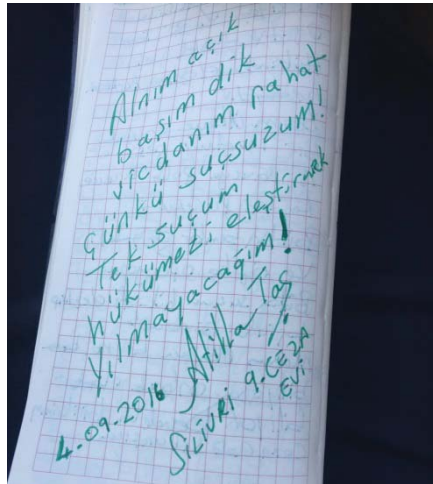 Alnım açık
başım dik
vicdanım rahat
Çünkü suçsuzum!
Tek suçum
hükümeti eleştirmek
Yılmayacağım!
Atilla Taş
4.09.2016
SİLİVRİ 9. CEZA
EVİ